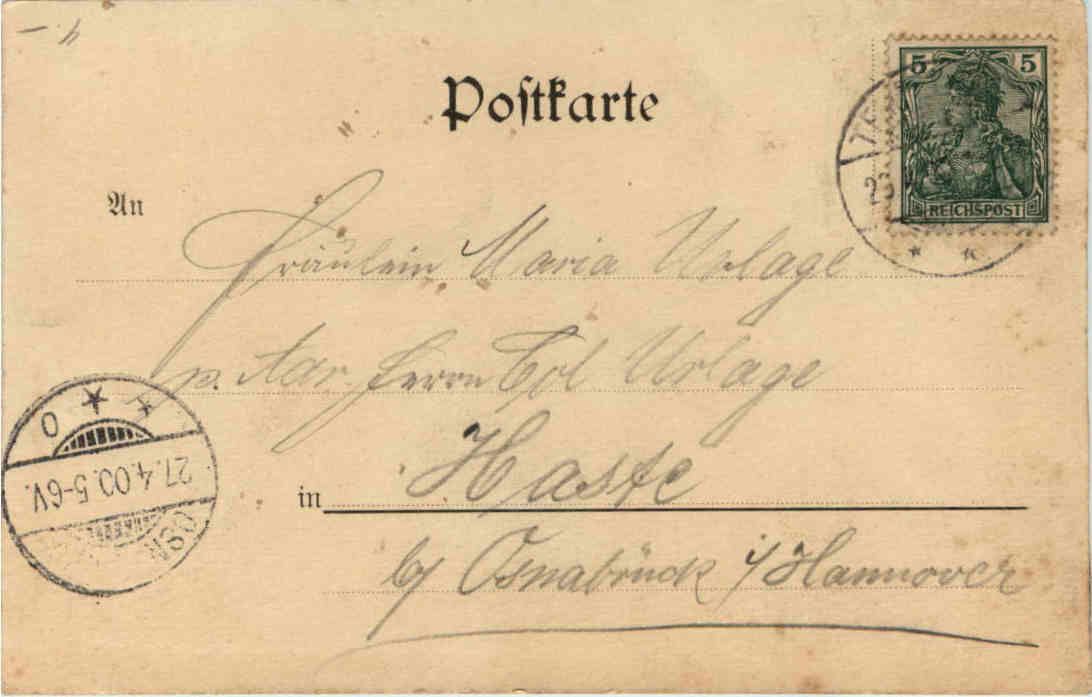 Postkarte
5 5
REICHSPOST
An
Fräulein Maria Urlage
p. Adr. Herrn Col Urlage
in Haste
b/ Osnabrück i/Hannover
27.4.00.5-6V.
OSN